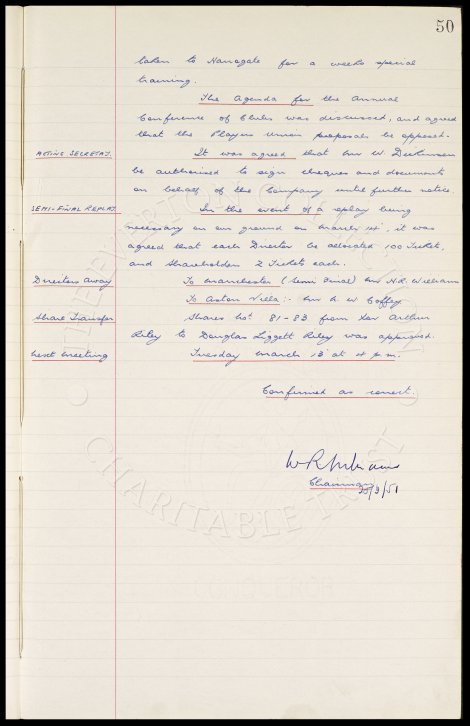 50
taken to Harrogate for a weeks special
training.
The Agenda for the Annual
Conference of Clubs was discussed, and agreed
that the Players Union proposals be opposed.
ACTING SECRETAY. It was agreed that Mr W. Dickinson
be authorised to sign cheques and documents
on behalf of the Company until further notice.
SEMI-FINAL REPLAY. In the event of a replay being
necessary on our ground on March 14th, it was
agreed that each Director be allocated 100 Tickets,
and Shareholders 2 Tickets each.
Directors Away To Manchester (Semi Final) Mr W.R. Williams
To Aston Villa:- Mr R W Coffey
Share Transfer Shares Nos 81-83 from Arthur
Riley to Douglas Liggett Riley was approved.
Next Meeting Tuesday March 13 at 4 p.m.
Confirmed as correct.
W R Williams
Chairman
20/3/51
THE EVERTON COLLECTION
CHARITABLE TRUST
CONQUEROR